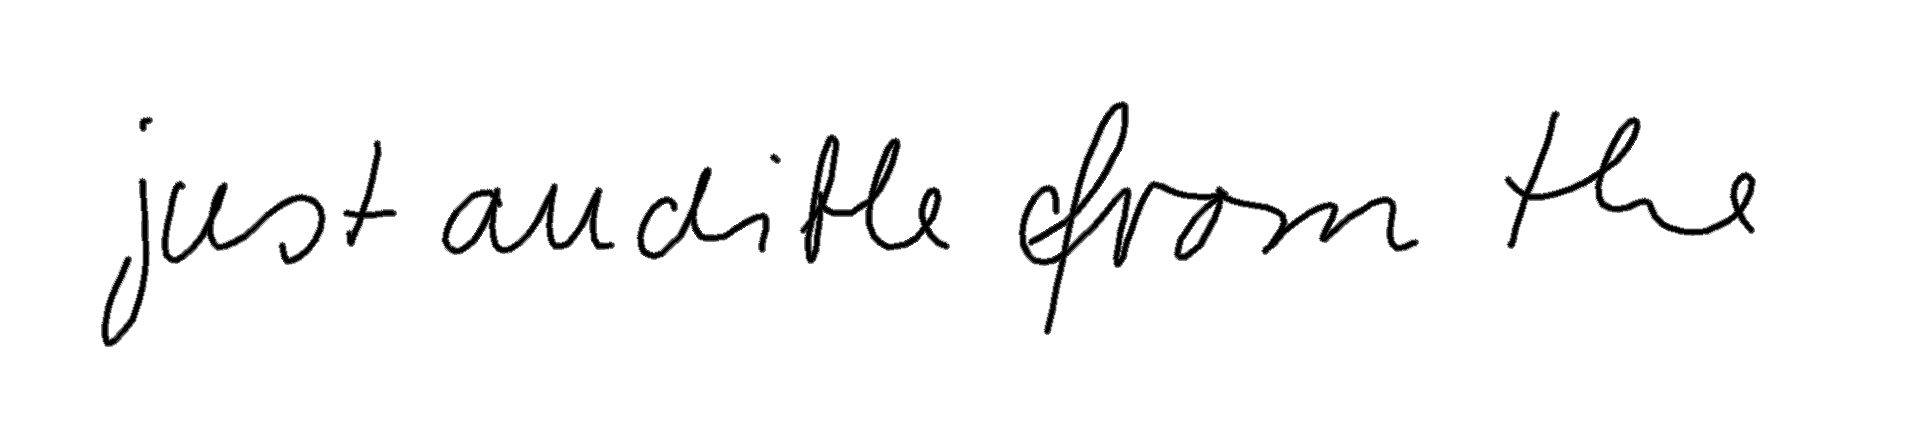 just audible from the